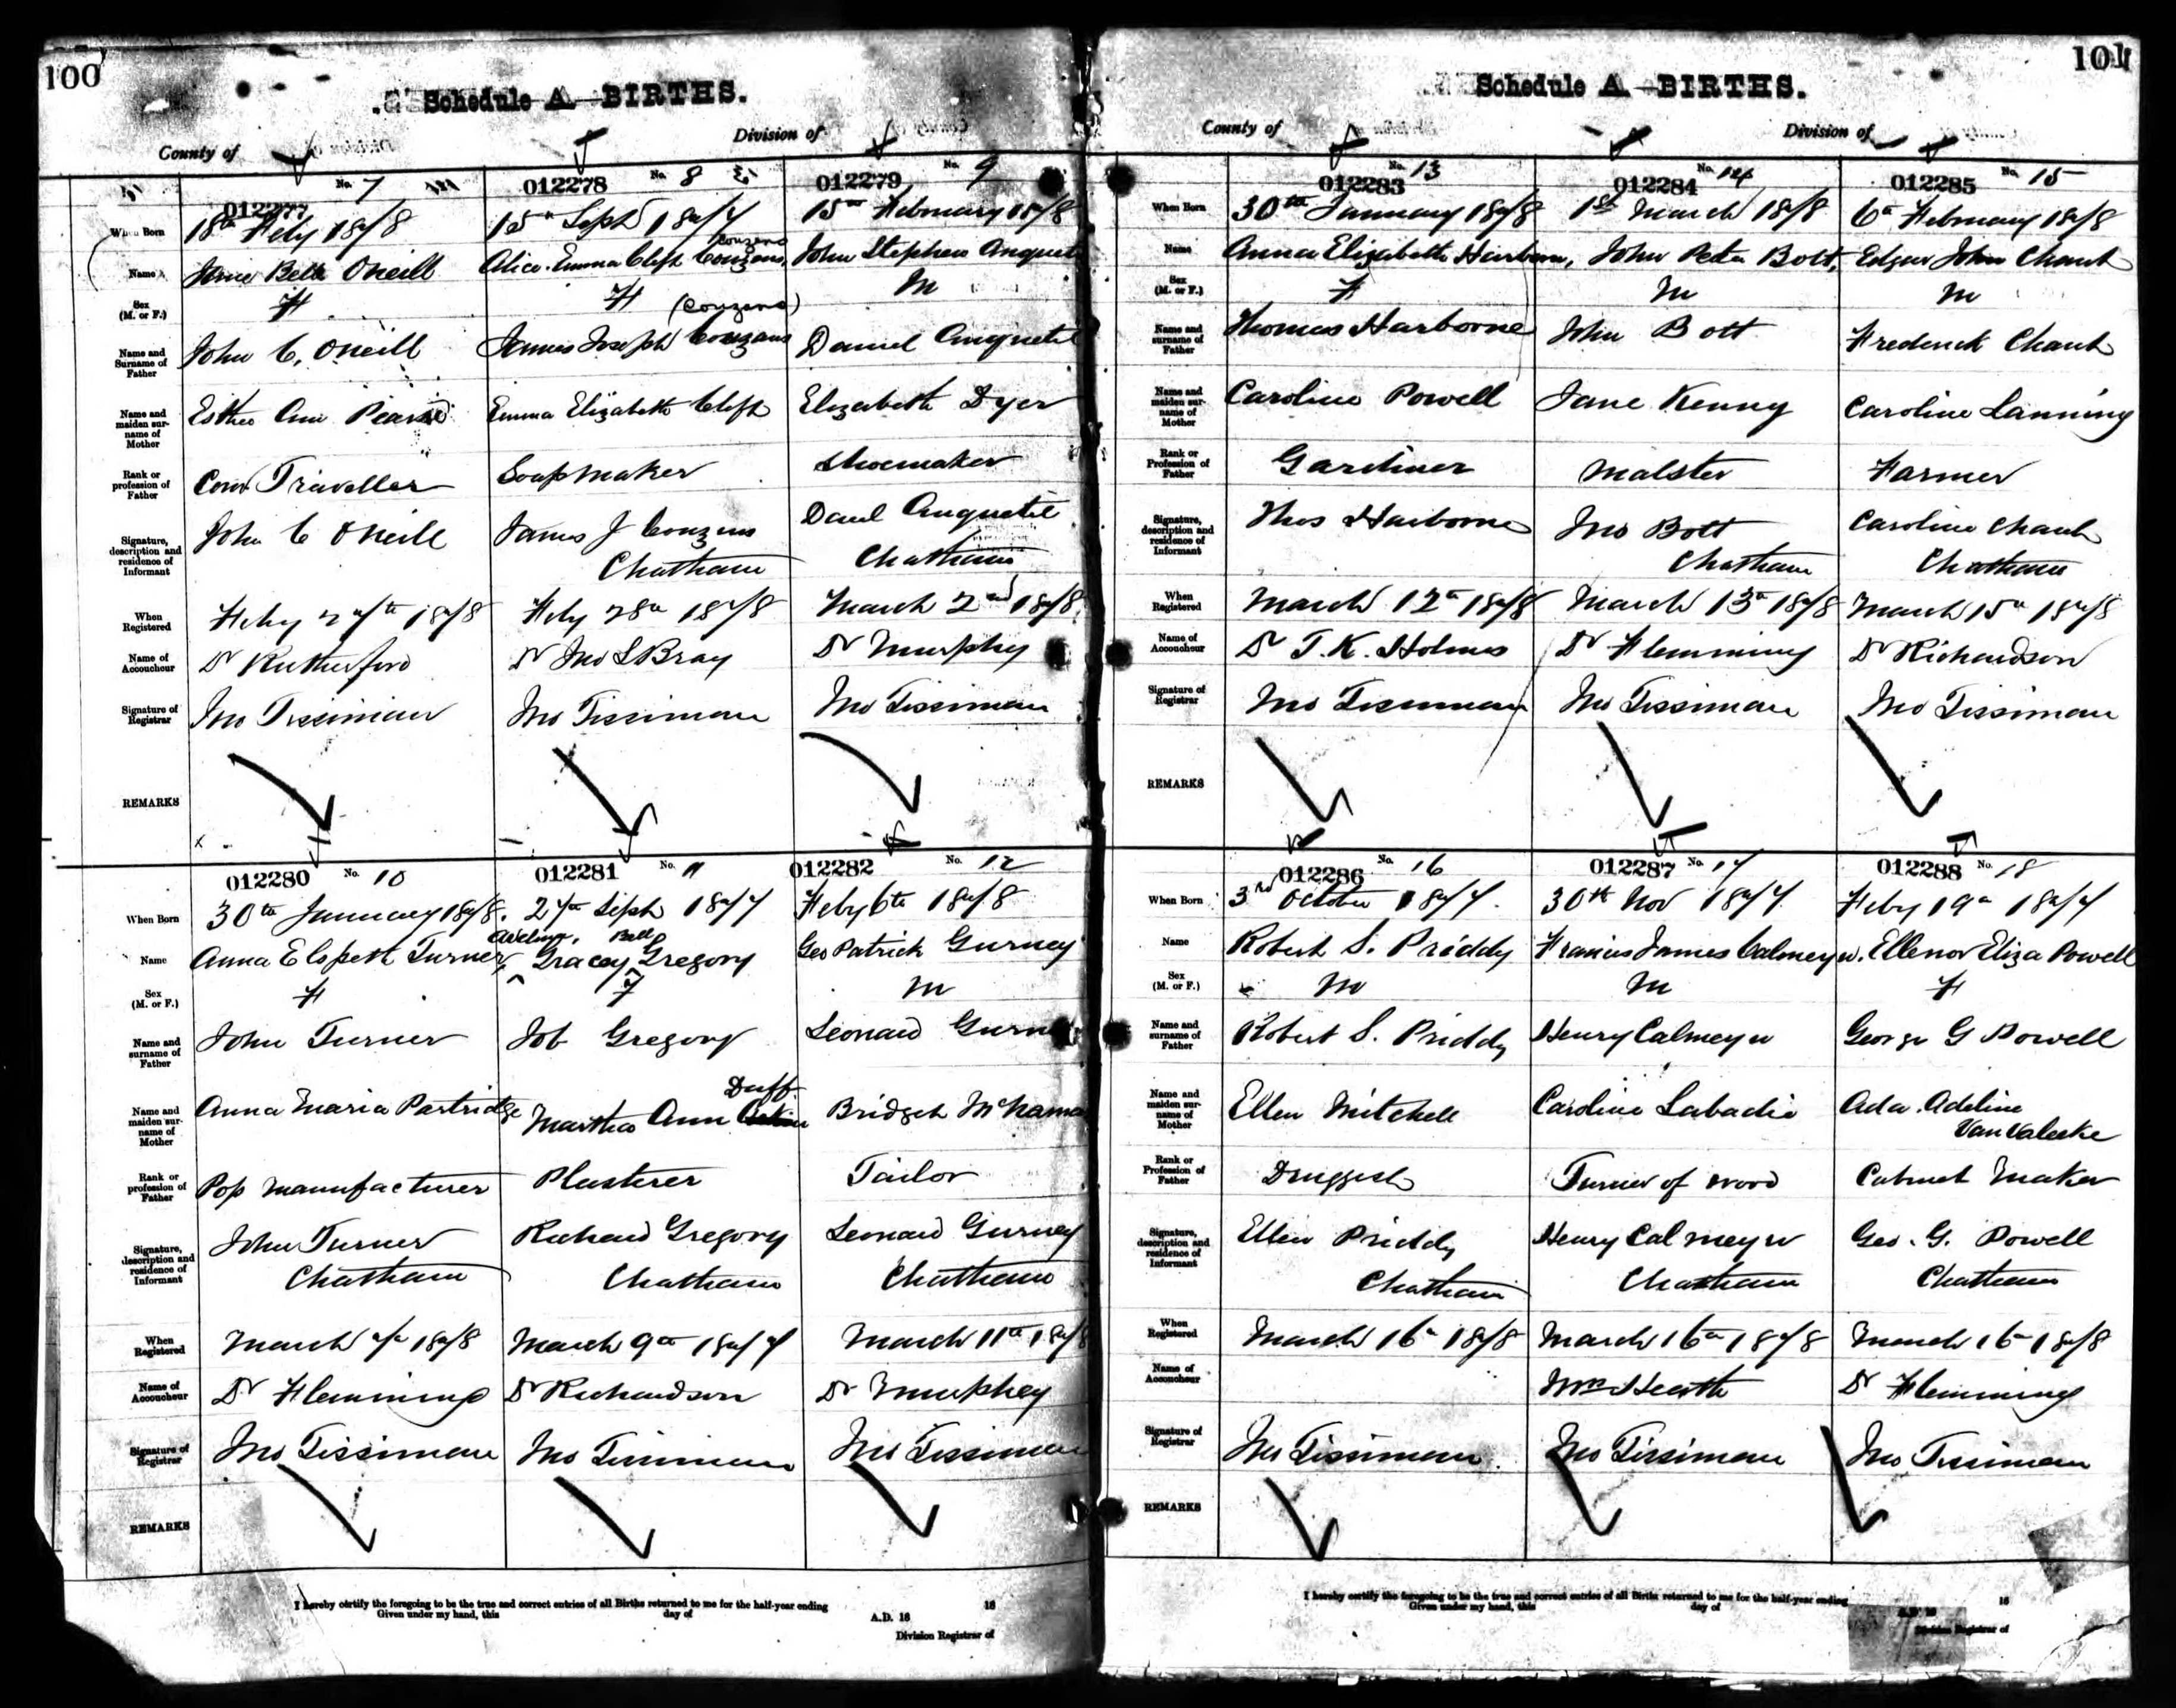 100
Schedule A—BIRTHS.
County of
Division of
No. 7
012277
When Born
18th Feby 1878
Name
Bell Oneill
Sex (M. or F.)
F
Name and Surname of Father
John C. Oneill
Name and maiden surname of Mother
Esther Ann
Rank or profession of Father
Com Traveller
Signature, description and residence of Informant
John C Oneill
When Registered
Feby 27th 1878
Name of Accoucheur
Dr Rutherford
Signature of Registrar
Jno Tissiman
REMARKS
012278
No. 8
15th Sept 1877
Couzens
Alice Emma Cleft Couzens,
F
(Couzens)
James Joseph Couzens
Emma Elizabeth Cleft
Soapmaker
James J Couzens
Chatham
Feby 28th 1878
Dr Jno L Bray
Jno Tissiman
012279
No. 9
15th February 1878
John Stephen Anquetil
M
Daniel Anquetil
Elizabeth Dyer
Shoemaker
Danl Anquetil
Chatham
March 2nd 1878
Dr Murphy
Jno Tissiman
012280
No. 10
When Born
30th January 1878.
Name
Anna Elspeth Turner
Sex (M. or F.)
F
Name and surname of Father
John Turner
Name and maiden surname of Mother
Anna Maria Partridge
Rank or profession of Father
Pop Manufacturer
Signature, description and residence of Informant
John Turner
Chatham
When Registered
March 7th 1878
Name of Accoucheur
Dr Flemming
Signature of Registrar
Jno Tissiman
REMARKS
012281
No. 11
27th Sept 1877
Adeline, Bell
Gracey Gregory
F
Job Gregory
Duff
Martha Ann
Plasterer
Richard Gregory
Chatham
March 9th 1877
Dr Richardson
Jno Tissiman
012282
No. 12
Feby 6th 1878
Geo Patrick Gurney
M
Leonard Gurney
Bridget McNama
Tailor
Leonard Gurney
Chatham
March 11th 1878
Dr Murphey
Jno Tissiman
I hereby certify the foregoing to be the true and correct entries of all Births returned to me for the half-year ending 18
Given under my hand, this day of A.D. 18
Division Registrar of
101
Schedule A—BIRTHS.
County of
Division of
No. 13
012283
When Born
30th January 1878
Name
Anna Elizabeth Hairborne,
Sex (M. or F.)
F
Name and surname of Father
Thomas Harborne
Name and maiden surname of Mother
Caroline Powell
Rank or Profession of Father
Gardiner
Signature, description and residence of Informant
Thos Harborne
When Registered
March 12th 1878
Name of Accoucheur
Dr T.K. Holmes
Signature of Registrar
Jno Tissiman
REMARKS
012284
No. 14
1st March 1878
John Peter Bott,
M
John Bott
Jane Kenny
Malster
Jno Bott
Chatham
March 13th 1878
Dr Flemming
Jno Tissiman
012285
No. 15
6th February 1878
Edgar John Chant
M
Frederick Chant
Caroline Lanning
Farmer
Caroline Chant
Chatham
March 15th 1878
Dr Richardson
Jno Tissiman
012286
No. 16
When Born
3rd October 1877.
Name
Robert S. Priddy
Sex (M. or F.)
M
Name and surname of Father
Robert S. Priddy
Name and maiden surname of Mother
Ellen Mitchell
Rank or Profession of Father
Druggist
Signature, description and residence of Informant
Ellen Priddy
Chatham
When Registered
March 16th 1878
Name of Accoucheur
Signature of Registrar
Jno Tissiman
REMARKS
012287
No. 17
30th Nov 1877
Francis James Calmeyn.
M
Henry Calmeyn
Caroline Labadie
Turner of wood
Henry Calmeyn
Chatham
March 16th 1878
Mrs Heath
Jno Tissiman
012288
No. 18
Feby 19th 1877
Ellenor Eliza Powell
F
George G Powell
Ada Adeline
VanValeske
Cabinet Maker
Geo. G. Powell
Chatham
March 16th 1878
Dr Flemming
Jno Tissiman
I hereby certify the foregoing to be the true and correct entries of all Births returned to me for the half-year ending 18
Given under my hand, this day of A.D. 18
Division Registrar of